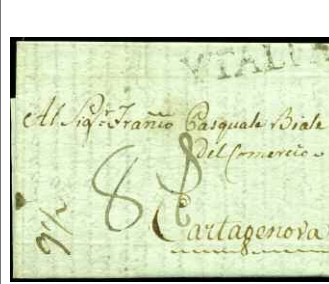 YTALIA
Al Sig.r Franco Pasquale Biale
del Comercio
8 8
Cartagenova
9 1/2